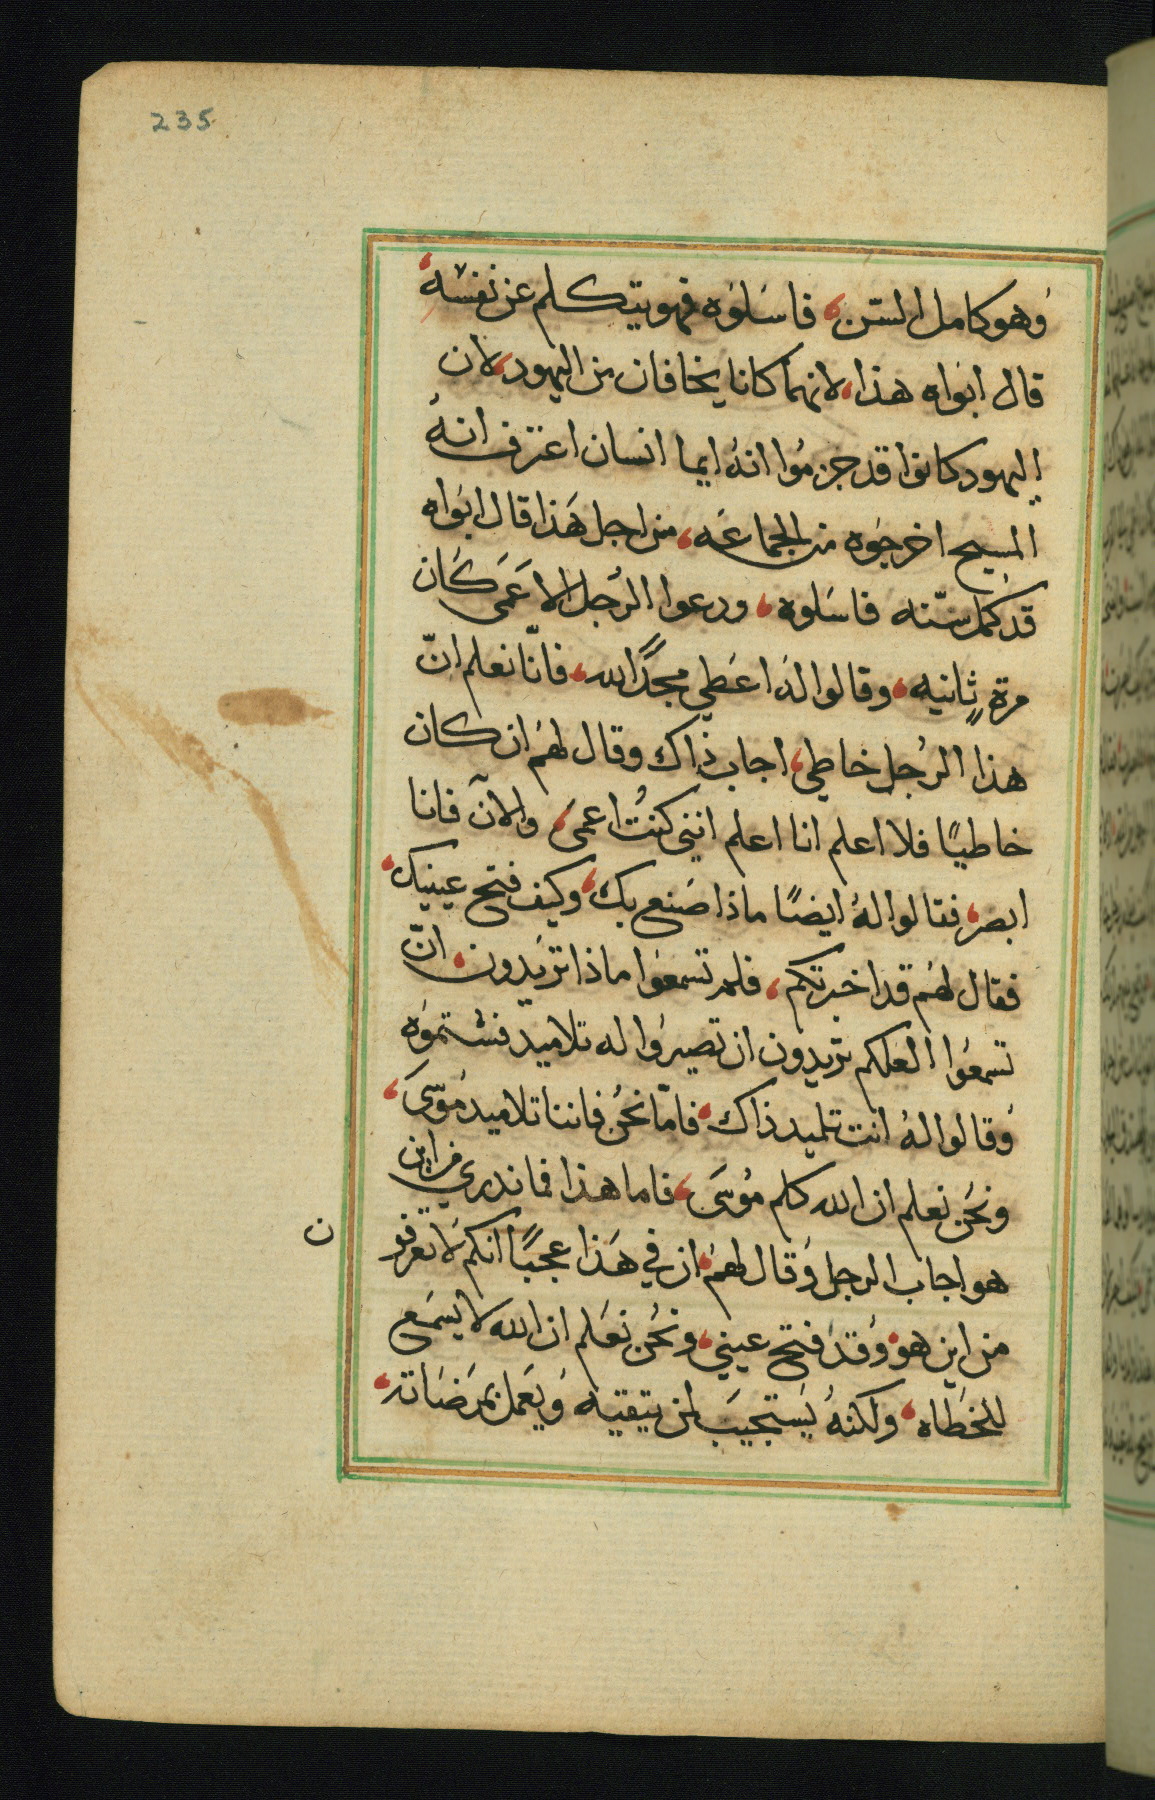 235
وهو كامل السّن، فاسَلوُه فهو يتكلم عن نفسه،
قال ابوَاه هذا، لانهما كانا يخافان من اليهود، لان
اليهود كانوا قد جزموُا انهُ ايما انسان اعترف انهُ
المسيح اخرجوَه من الجماعَه، من اجل هَذا قال ابوَاه
قد كمل سنّه فاسَلوه، ودعوا الرجُل الاعَمى كَان
مرة ٍثانيه، وقالوا لهَ اعَطي مجدًا لله، فانّا نعلم انّ
هذا الرجُل خاطي، اجاب ذاك وقال لهمُ ان كان
خاطيًا فلا اعلم انا اعلم انني كنتُ اعمىَ، والآن فانا
ابصر، فقالوا لهُ ايضًا ماذا صَنع بك، وكيف فتح عينيك،
فقال لهمُ قد اخبرتكم، فلم تسمعوا ماذا تريَدون، انّ
تسمعوُا العلكم تريدون ان تصيروُا له تلاميد فشتموَه
وُقالوا لهُ انت تلميد ذاك، فامّا نحنُ فاننا تلاميد موُسىَ،
ونحَن نعلم ان الله كلم موُسىَ، فاما هذا فما ندري من اين
هو اجاب الرجل وُقال لهمُ، ان في هَذا عجبًا انكم لَا تعرفو
ن
من اين هو، وُقدَ فتح عيني، ونحُن نعَلم ان الله لا يسمَع
للخطَاه، ولكنهُ يَستجيبَ لمن يتقيه وَيعَمل بمرَضَاته،